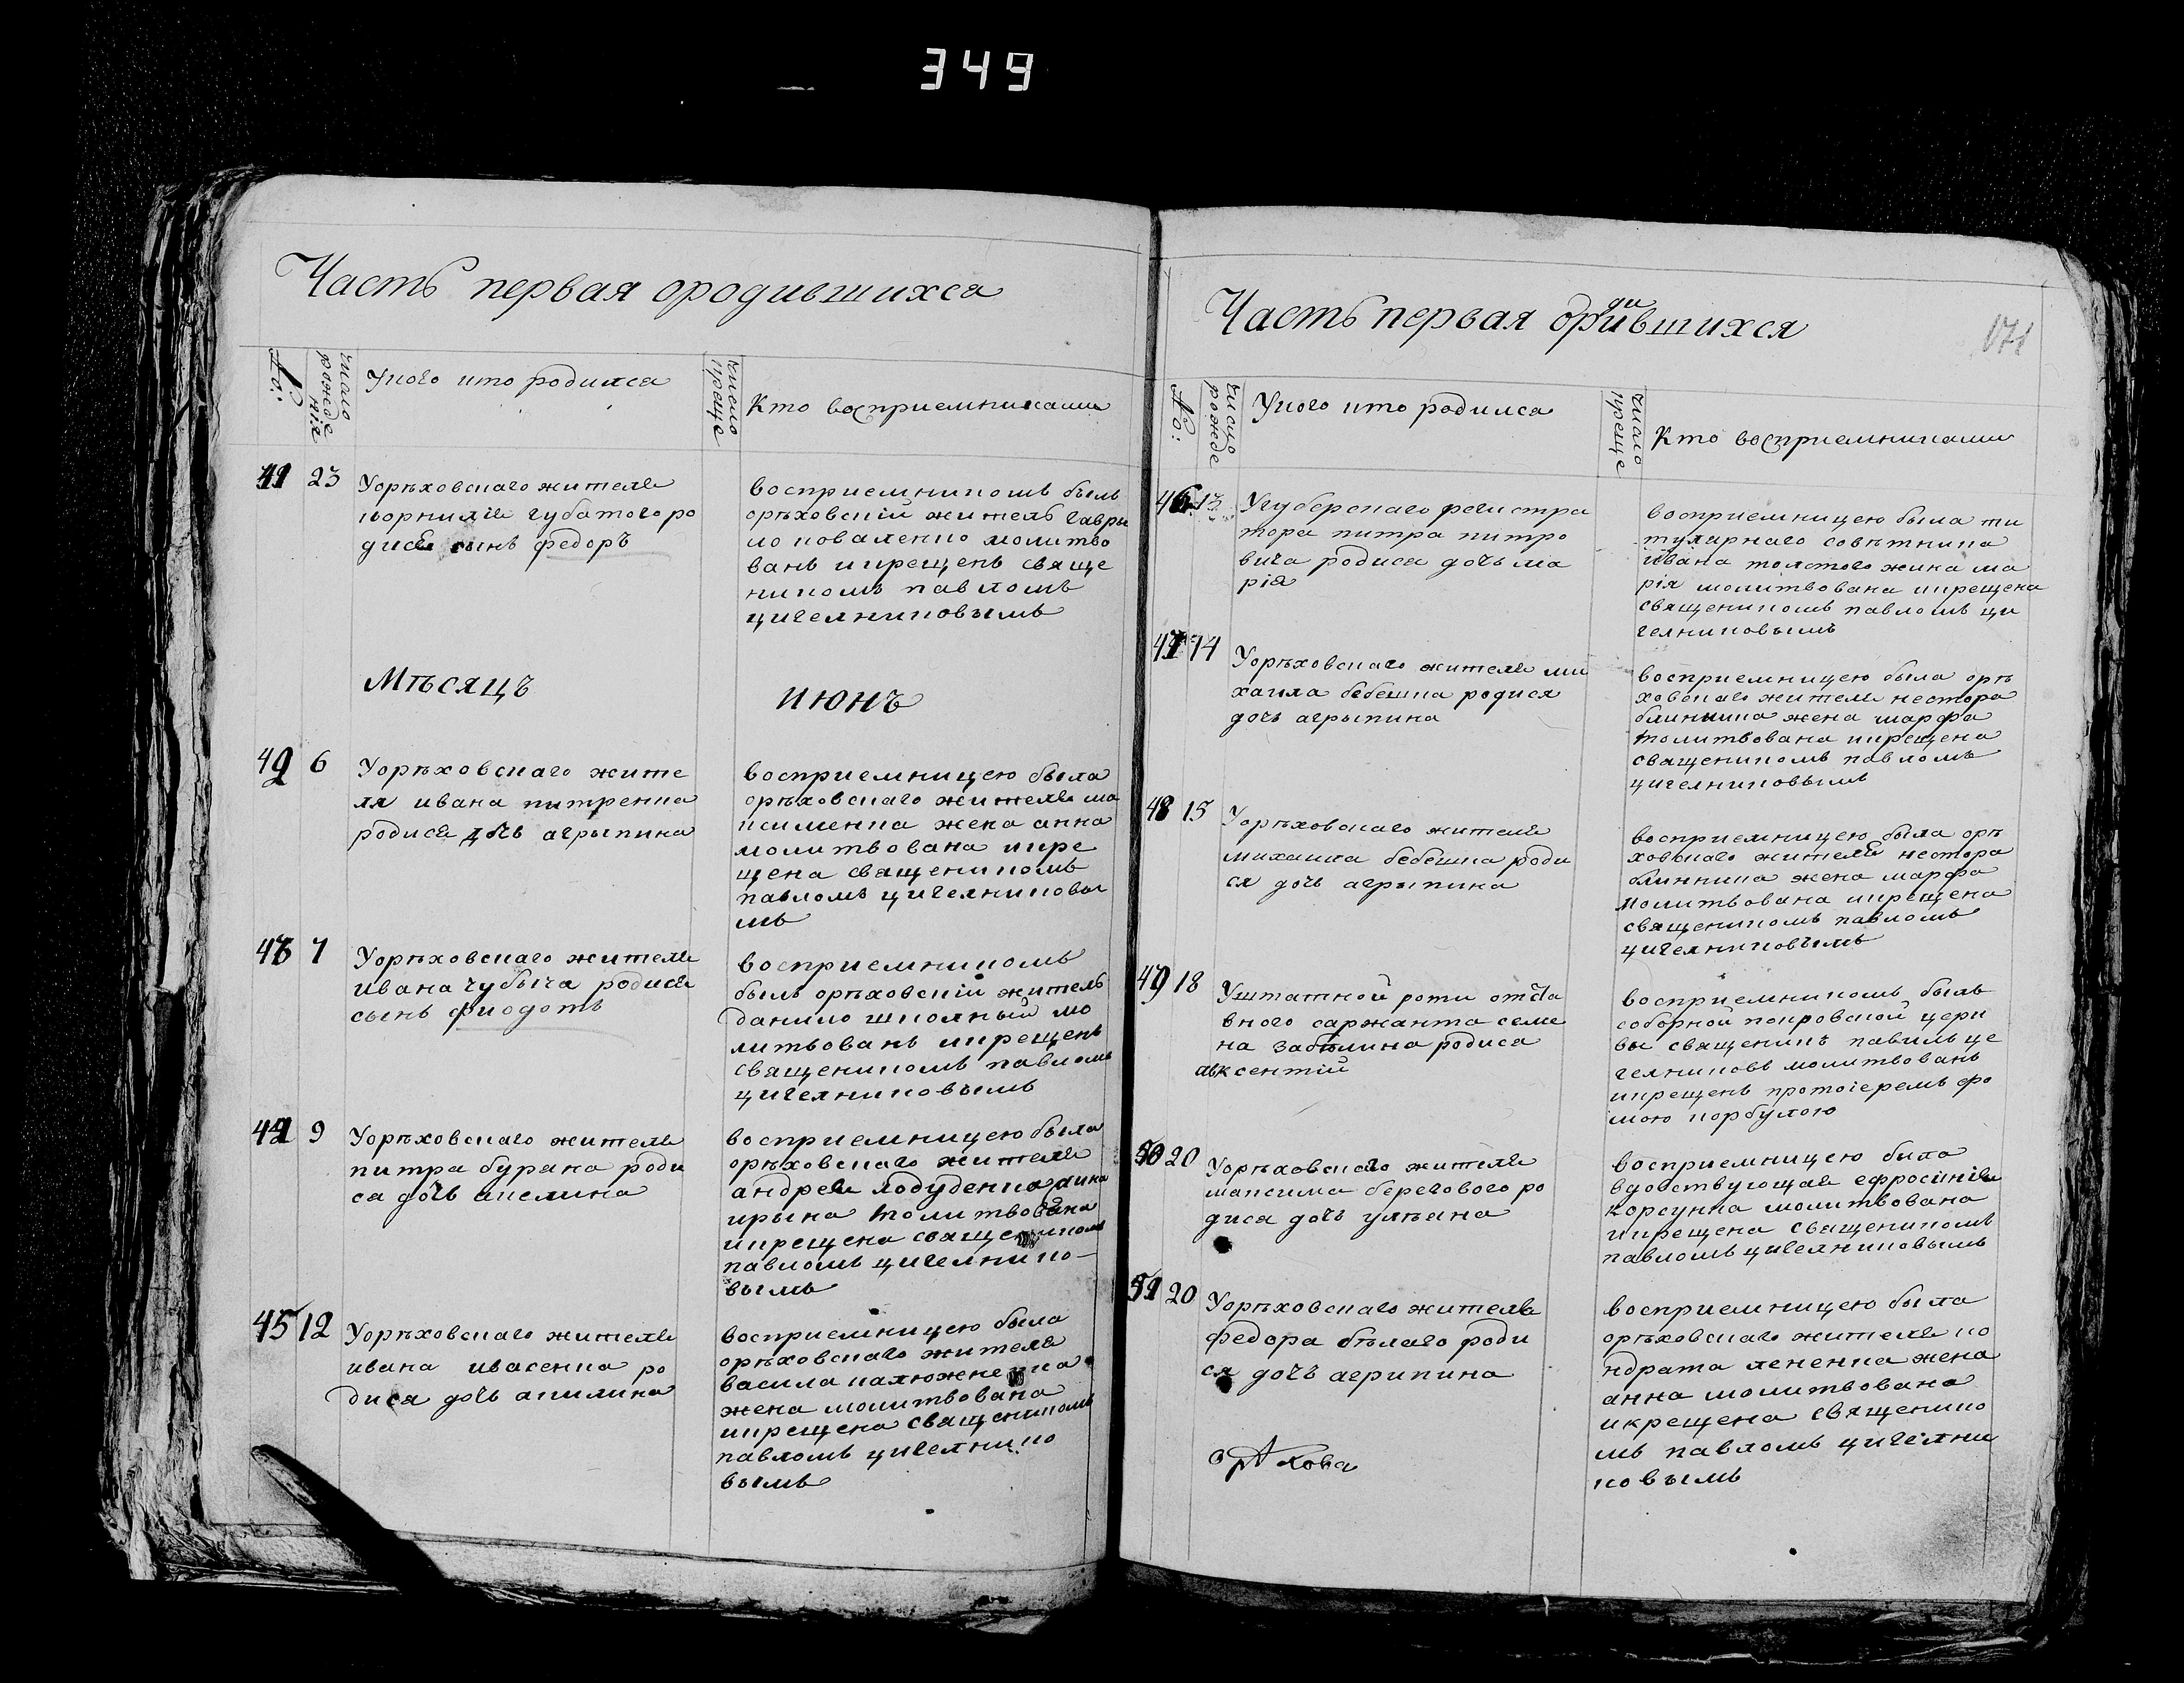 349
Часть первая ородившихса
№:
число рожде нія
Укого кто родился
число креще
Кто восприемниками
41 23
Уорѣховскаго жителя
корнилія губатого ро
дися сынъ федоръ
восприемникомъ былъ
орѣховскій житель гаври
ло коваленко молитво
ванъ икрещенъ свяще
никомъ павломъ
цигелниковымъ
Мѣсяцъ
июнъ
42 6
Уорѣховскаго жите
ля ивана питренка
родися дочъ агрыпина
восприемницею была
орѣховскаго жителя ма
ксименка жена анна
молитвована икре
щена священикомъ
павломъ цигелниковы
мъ
43 7
Уорѣховскаго жителя
ивана губыча родися
сынъ фиодотъ
восприемникомъ
былъ орѣховскій житель
данило школный мо
литвованъ икрещенъ
священикомъ павломъ
цигелниковымъ
44 9
Уорѣховскаго жителя
питра бурана роди
са дочъ акелина
восприемницею была
орѣховскаго жителя
андрея лодуденка жина
ирына молитвована
икрещена священикомъ
павломъ цигелнико-
вымъ
45 12
Уорѣховскаго жителя
ивана ивасенка ро
диса дочъ акилина
восприемницею была
орѣховскаго жителя
васила калюженка
жена молитвована
икрещена священикомъ
павломъ цигелнико
вымъ
Часть первая ородившихся
171
№:
число рожде
Укого кто родилса
число креще
Кто восприемниками
46 13
Угуберскаго регистра
тора питра питро
вича родиса дочъ ма
рія
восприемницею была ти
тулярнаго совѣтника
ивана толстого жина ма
рія молитвована икрещена
священикомъ павломъ ци
гелниковымъ
47 14
Уорѣховскаго жителя ми
хаила бебешка родися
дочъ агрыпина
восприемницею была орѣ
ховскаго жителя нестора
блинника жена марфа
молитвована икрещена
священикомъ павломъ
цигелниковымъ
48 15
Уорѣховскаго жителя
михаила бебешка роди
ся дочъ агрыпина
восприемницею была орѣ
ховскаго жителя нестора
блинника жена марфа
молитвована икрещена
священикомъ павломъ
цигелниковымъ
49 18
Уштатной роти отста
вного саржанта семе
на забѣлина родиса
авксентій
восприемникомъ былъ
соборной покровской церк
вы священикъ павилъ це
гелниковъ молитвованъ
икрещенъ протоіеремъ фо
мою корбулою
50 20
Уорѣховскаго жителя
максима берегового ро
диса дочъ улъяна
восприемницею была
вдовствующая ефросиния
корсунка молитвована
икрещена священикомъ
павломъ цигелниковымъ
51 20
Уорѣховскаго жителя
федора бѣлаго роди
ся дочъ агрипина
восприемницею была
орѣховскаго жителя ко
ндрата лененка жена
анна молитвована
икрещена священико
мъ павломъ цигелни
ковымъ